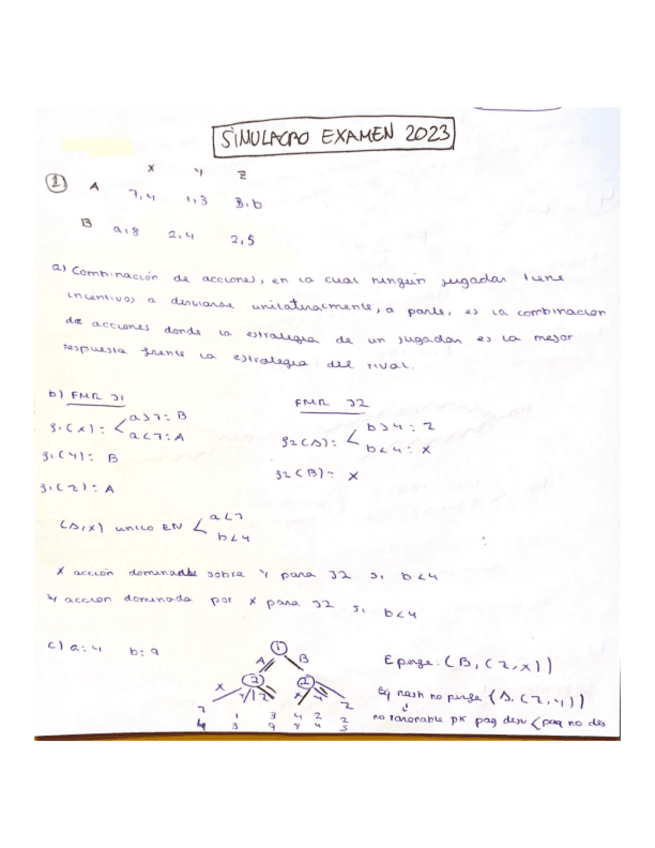 SIMULACRO EXAMEN 2023
1
X Y Z
A 7,4 1,3 3,b
B a,8 2,4 2,5
a) Combinación de acciones, en la cual ningún jugador tiene
incentivos a desviarse unilateralmente, a parte, es la combinacion
de acciones donde la estrategia de un jugador es la mejor
respuesta frente la estrategia del rival.
b) FMR J1
FMR J2
g1(X): < a>7: B
a<7: A
g1(Y): B
g1(Z): A
g2(A): < b>4: Z
b<4: X
g2(B): X
(A,X) unico EN < a<7
b<4
X acción dominante sobre Y para J2 si b<4
Y accion dominada por X para J2 si b<4
c) a:4 b:9
1
A B
2 2
X Y Z X Y Z
7 1 3 4 2 2
4 3 9 8 4 5
E perfe: (B, (Z,X))
Eq nash no perfe (A, (Z,Y))
no razonable pk pag desv < pag no des